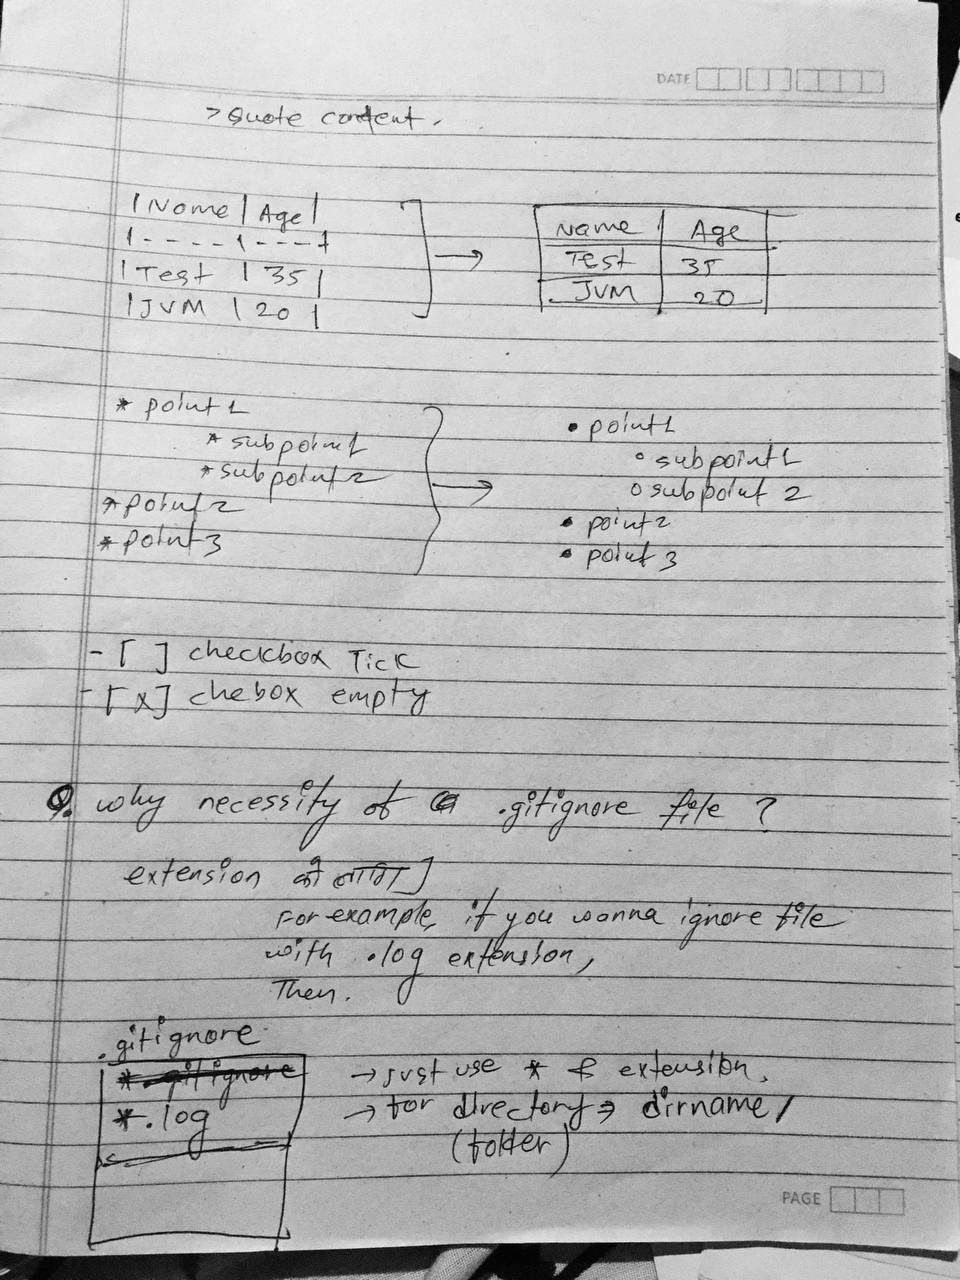 DATE
> Quote content.
| Nome | Age |
| - - - - | - - - - |
| Test | 35 |
| JVM | 20 |
→
Name | Age
Test | 35
JVM | 20
* point 1
* subpoint1
* subpoint2
* point 2
* point 3
→
• point 1
○ subpoint 1
○ subpoint 2
• point 2
• point 3
- [ ] checkbox Tick
- [x] chebox empty
Q. why necessity of a .gitignore file ?
extension को लागि ]
For example, if you wanna ignore file
with .log extension,
Then.
.gitignore
*.gitignore
*.log
→ Just use * & extension.
→ for directory ⇒ dirname/
(folder)
PAGE